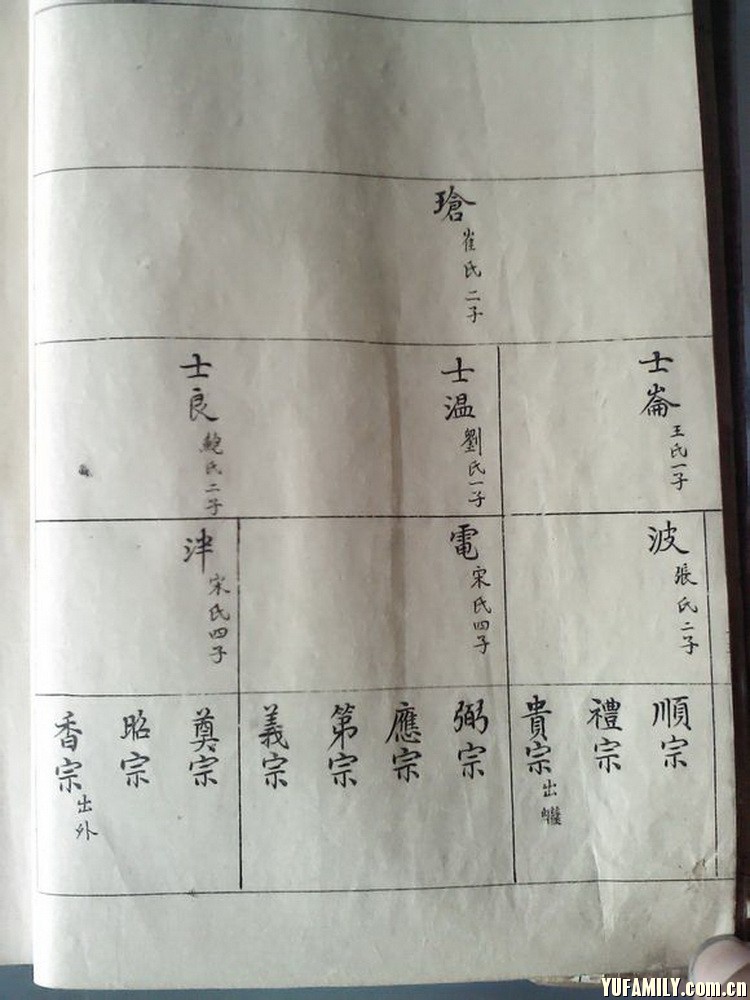 瑲 崔氏二子
士崙 王氏一子
士温 劉氏一子
士良 鮑氏二子
波 張氏二子
電 宋氏四子
津 宋氏四子
順宗
禮宗
貴宗 出繼
弼宗
應宗
第宗
義宗
奠宗
昭宗
香宗 出外
YUFAMILY.com.cn